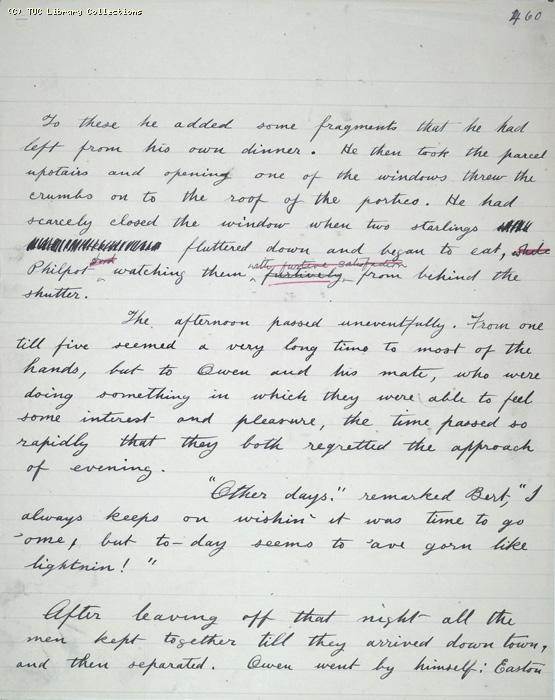 (C) TUC Library Collections
460
To these he added some fragments that he had
left from his own dinner. He then took the parcel
upstairs and opening one of the windows threw the
crumbs on to the roof of the portico. He had
scarcely closed the window when two starlings
fluttered down and began to eat, while
and with furtive satisfaction
Philpot watching them furtively from behind the
shutter.
The afternoon passed uneventfully. From one
till five seemed a very long time to most of the
hands, but to Owen and his mate, who were
doing something in which they were able to feel
some interest and pleasure, the time passed so
rapidly that they both regretted the approach
of evening.
"Other days." remarked Bert, "I
always keeps on wishin' it was time to go
'ome, but to-day seems to 'ave gorn like
lightnin! "
After leaving off that night all the
men kept together till they arrived down town,
and then separated. Owen went by himself: Easton